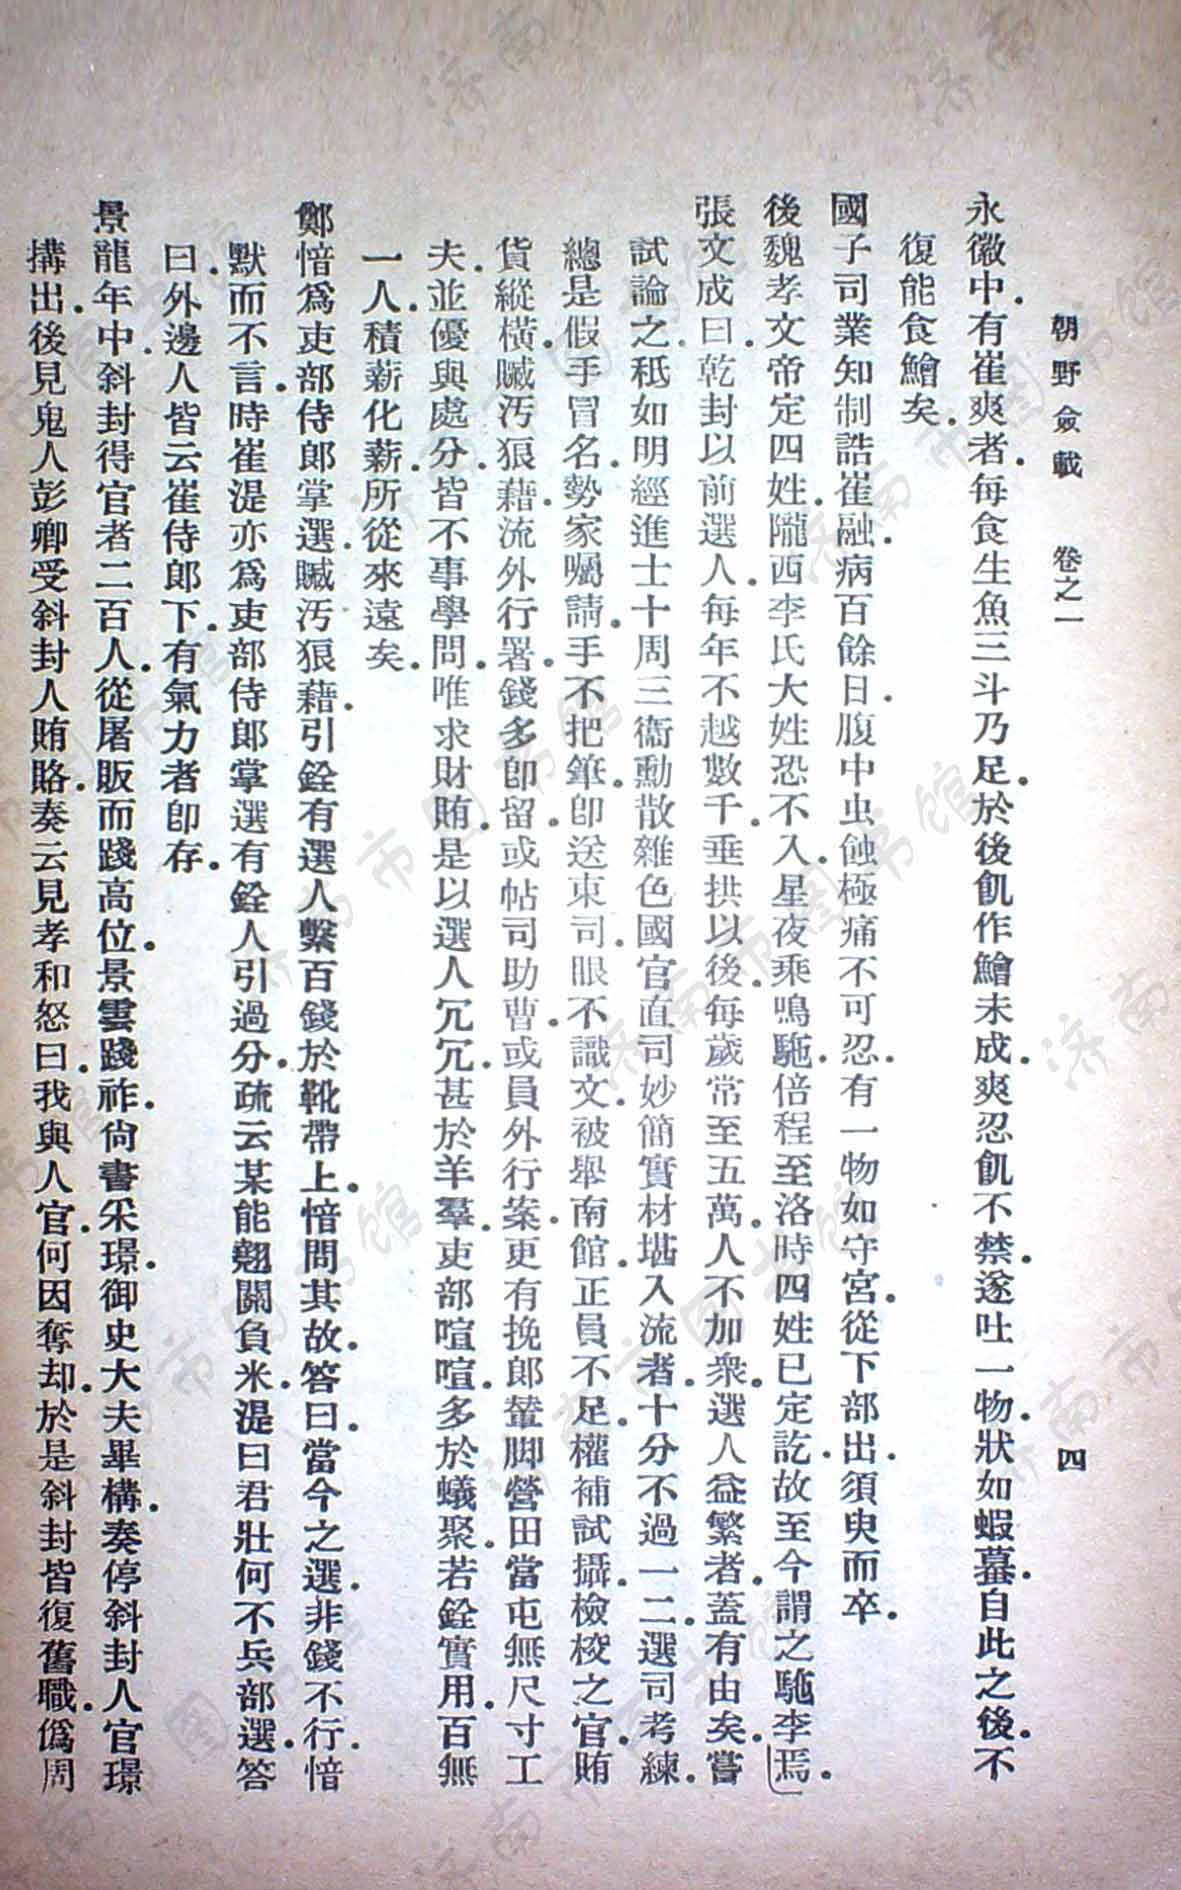 朝野僉載　卷之一　四
永徽中．有崔爽者．每食生魚三斗乃足．於後飢作鱠未成．爽忍飢不禁．遂吐一物．狀如蝦蟇．自此之後．不
復能食鱠矣．
國子司業知制誥崔融．病百餘日．腹中虫蝕極痛不可忍．有一物如守宮．從下部出．須臾而卒．
後魏孝文帝定四姓．隴西李氏大姓．恐不入．星夜乘鳴駞．倍程至洛．時四姓已定訖．故至今謂之駞李焉．
張文成曰．乾封以前選人．每年不越數千．垂拱以後．每歲常至五萬．人不加衆．選人益繁者．蓋有由矣．嘗
試論之．秖如明經進士．十周三衞．勳散雜色．國官直司．妙簡實材．堪入流者．十分不過一二．選司考練．
總是假手冒名．勢家囑請．手不把筆．卽送東司．眼不識文．被舉南館．正員不足．權補試攝．檢校之官．賄
貨縱橫．贓汚狼藉．流外行署．錢多卽留．或帖司助曹．或員外行案．更有挽郎輦脚．營田當屯．無尺寸工
夫．並優與處分．皆不事學問．唯求財賄．是以選人冗冗．甚於羊羣．吏部喧喧．多於蟻聚．若銓實用．百無
一人．積薪化薪．所從來遠矣．
鄭愔爲吏部侍郎掌選．贓汚狼藉．引銓有選人繫百錢於靴帶上．愔問其故．答曰．當今之選．非錢不行．愔
默而不言．時崔湜亦爲吏部侍郎掌選．有銓人引過．分疏云．某能翹關負米．湜曰．君壯．何不兵部選．答
曰．外邊人皆云．崔侍郎下．有氣力者卽存．
景龍年中．斜封得官者二百人．從屠販而踐高位．景雲踐祚．尙書宋璟．御史大夫畢構．奏停斜封人官．璟
搆出．後見鬼人彭卿受斜封人賄賂．奏云．見孝和．怒曰．我與人官．何因奪却．於是斜封皆復舊職．僞周